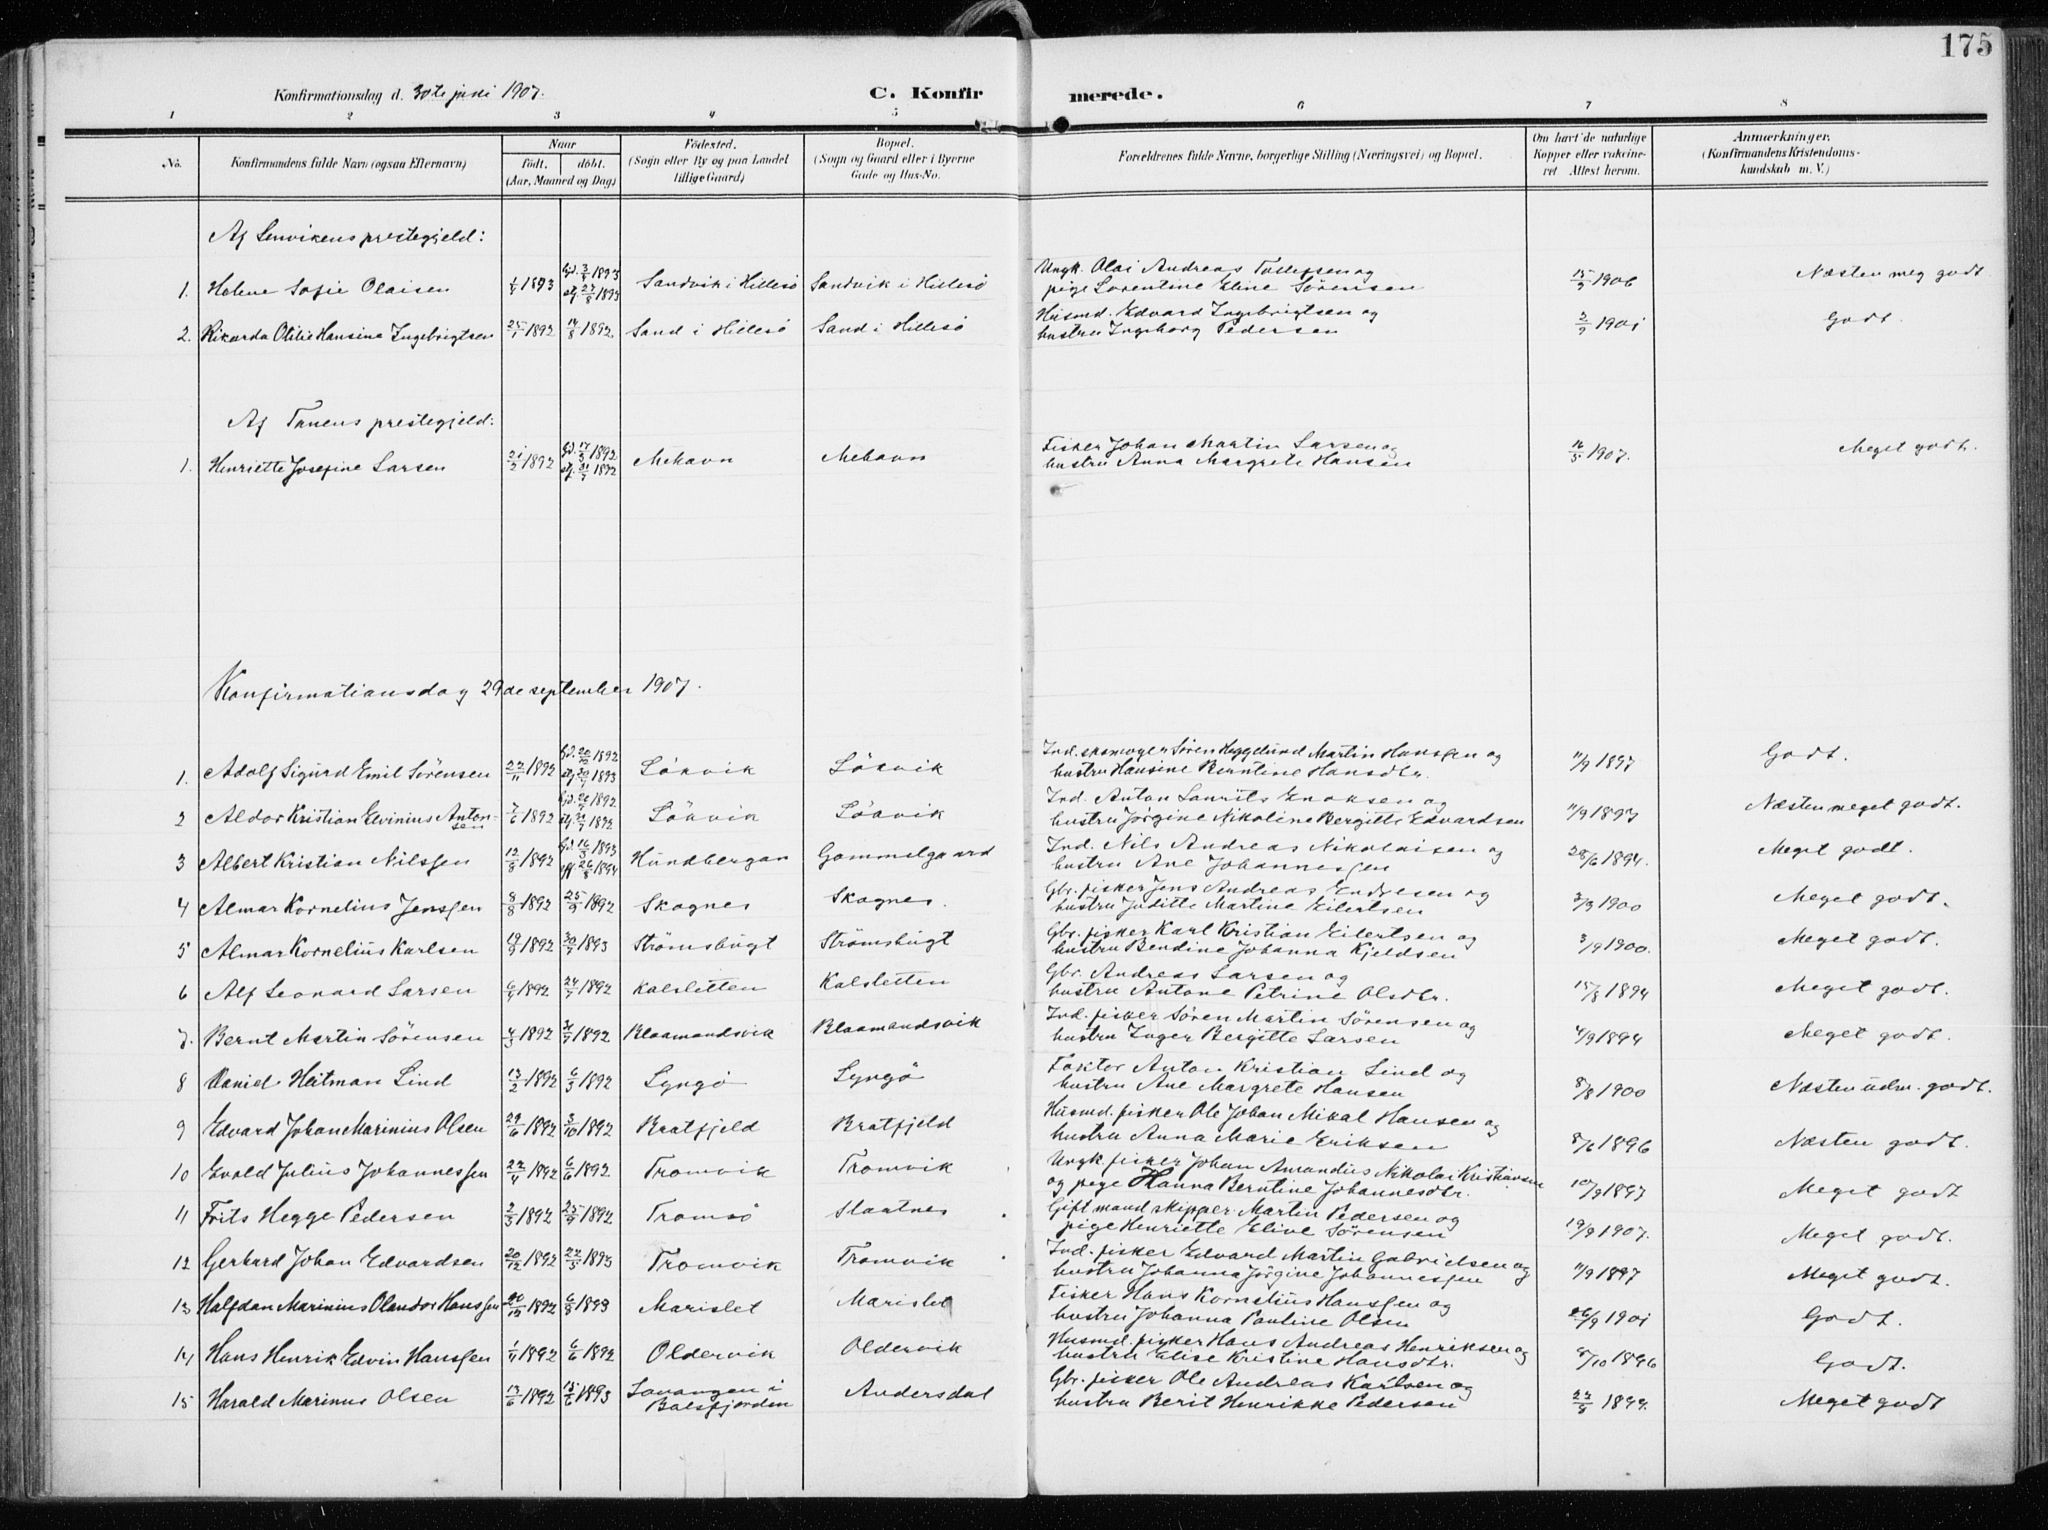 175
Konfirmationsdag d. 30te juni 1907. C. Konfirmerede.
1 2 3 4 5 6 7 8
No. Konfirmandens fulde Navn (ogsaa Efternavn) Naar født. døbt. (Aar, Maaned og Dag) Fødested. (Sogn eller By og paa Landet tillige Gaard) Bopæl. (Sogn og Gaard eller i Byerne Gade og Hus-No. Forældrenes fulde Navne, borgerlige Stilling (Næringsvei) og Bopæl. Om havt de naturlige Kopper eller vakcineret Attest herom. Anmærkninger. (Konfirmandens Kristendomskundskab m. V.)
Af Lenvikens prestegjeld:
1. Helene Sofie Olaisen 1/4 1893 Sandvik i Hillesö Sandvik i Hillesö Ungk. Olai Andreas Tollefsen og
pige Lorentine Eline Sörensen 15/9 1906 Næsten meg godt
2. Rikarda Otilie Hansine Ingebrigtsen 25/1 1892 14/8 1892. Sand i Hillesö Sand i Hillesö Husmd. Edvard Ingebrigtsen og
hustru Ingeborg Pedersen 2/9 1901 Godt.
Af Tanens prestegjeld:
1. Henriette Josefine Larsen 21/2 1892 hjd. 17/3 1892 stf. 31/7 1892 Mehavn Mehavn Fisker Johan Martin Larsen og
hustru Anna Margrete Hansen 16/5 1907. Meget godt.
Konfirmationsdag 29de september 1907.
1. Adolf Sigurd Emil Sörensen 22/11 1892 Lökvik Lökvik Ind. skomager Sören Heggelund Martin Hanssen og
hustru Hansine Berntine Hansdtr. 11/9 1897 Godt.
2 Aldor Kristian Elvinius Antonsen 7/6 1892 Lökvik Lökvik Ind. Anton Laurits Enoksen og
hustru Jörgine Nikoline Bergitte Edvardsen 11/9 1897 Næsten meget godt.
3 Albert Kristian Nilssen 1892 Hundbergan Gammelgaard Ind. Nils Andreas Nikolaisen og
hustru Ane Johannessen 28/6 1894. Meget godt.
4 Almar Kornelius Jenssen 8/8 1892 25/9 1892 Skognes Skognes. Gbr. fisker Jens Andreas Endresen og
hustru Juditte Martine Eilertsen 3/9 1900 Meget godt.
5 Almar Kornelius Karlsen 1892 30/7 1893 Strömsbugt Strömsbugt Gbr. fisker Karl Kristian Eilertsen og
hustru Bendine Johanna Kjeldsen 3/9 1900. Meget godt.
6 Alf Leonard Larsen 6/4 1892 24/7 1892 Kalsletten Kalsletten Gbr. Andreas Larsen og
hustru Antone Petrine Olsdtr. 15/8 1894 Meget godt.
7. Bernt Martin Sörensen 4/3 1892 1892 Blaamandsvik Blaamandsvik Ind. fisker Sören Martin Sörensen og
hustru Inger Bergitte Larsen 4/9 1894 Meget godt.
8 Daniel Heitman Lind 13/2 1892 6/3 1892 Lyngö Lyngö Faktor Anton Kristian Lind og
hustru Ane Margrete Hansen 8/8 1900 Næsten udm. godt.
9 Edvard Johan Marinius Olsen 29/6 1892 3/10 1892 Bratfjeld Bratfjeld Husmd. fisker Ole Johan Mikal Hansen og
hustru Anna Marie Eriksen 8/6 1896 Næsten godt.
10 Evald Julius Johannessen 22/4 1892 6/6 1892 Tromvik Tromvik Ungk. fisker Johan Amandus Nikolai Kristiansen
og pige Hanna Berntine Johannesdtr. 10/9 1897 Meget godt
11 Frits Hegge Pedersen 2/3 1892 25/9 1892 Tromsö Slaatnes Gift mand skipper Martin Pedersen og
pige Henriette Eline Sörensen 19/9 1907. Meget godt.
12 Gerhard Johan Edvardsen 20/12 1892 22/5 1893 Tromvik Tromvik Ind. fisker Edvard Martin Gabrielsen og
hustru Johanna Jörgine Johannessen 11/9 1897 Meget godt.
13 Halfdan Marinius Olandor Hanssen 20/12 1892 6/8 1893 Marislet Marislet Fisker Hans Kornelius Hanssen og
hustru Johanna Pauline Olsen 26/9 1901 Godt.
14 Hans Henrik Edvin Hanssen 1/4 1892 6/6 1892 Oldervik Oldervik Husmd. fisker Hans Andreas Henriksen og
hustru Elise Kristine Hansdtr. 8/10 1896 Godt.
15 Harald Marinus Olsen 13/6 1892 15/6 1893 Lavangen i Balsfjorden Andersdal Gbr. fisker Ole Andreas Karlsen og
hustru Berit Henrikke Pedersen 22/8 1899. Meget godt